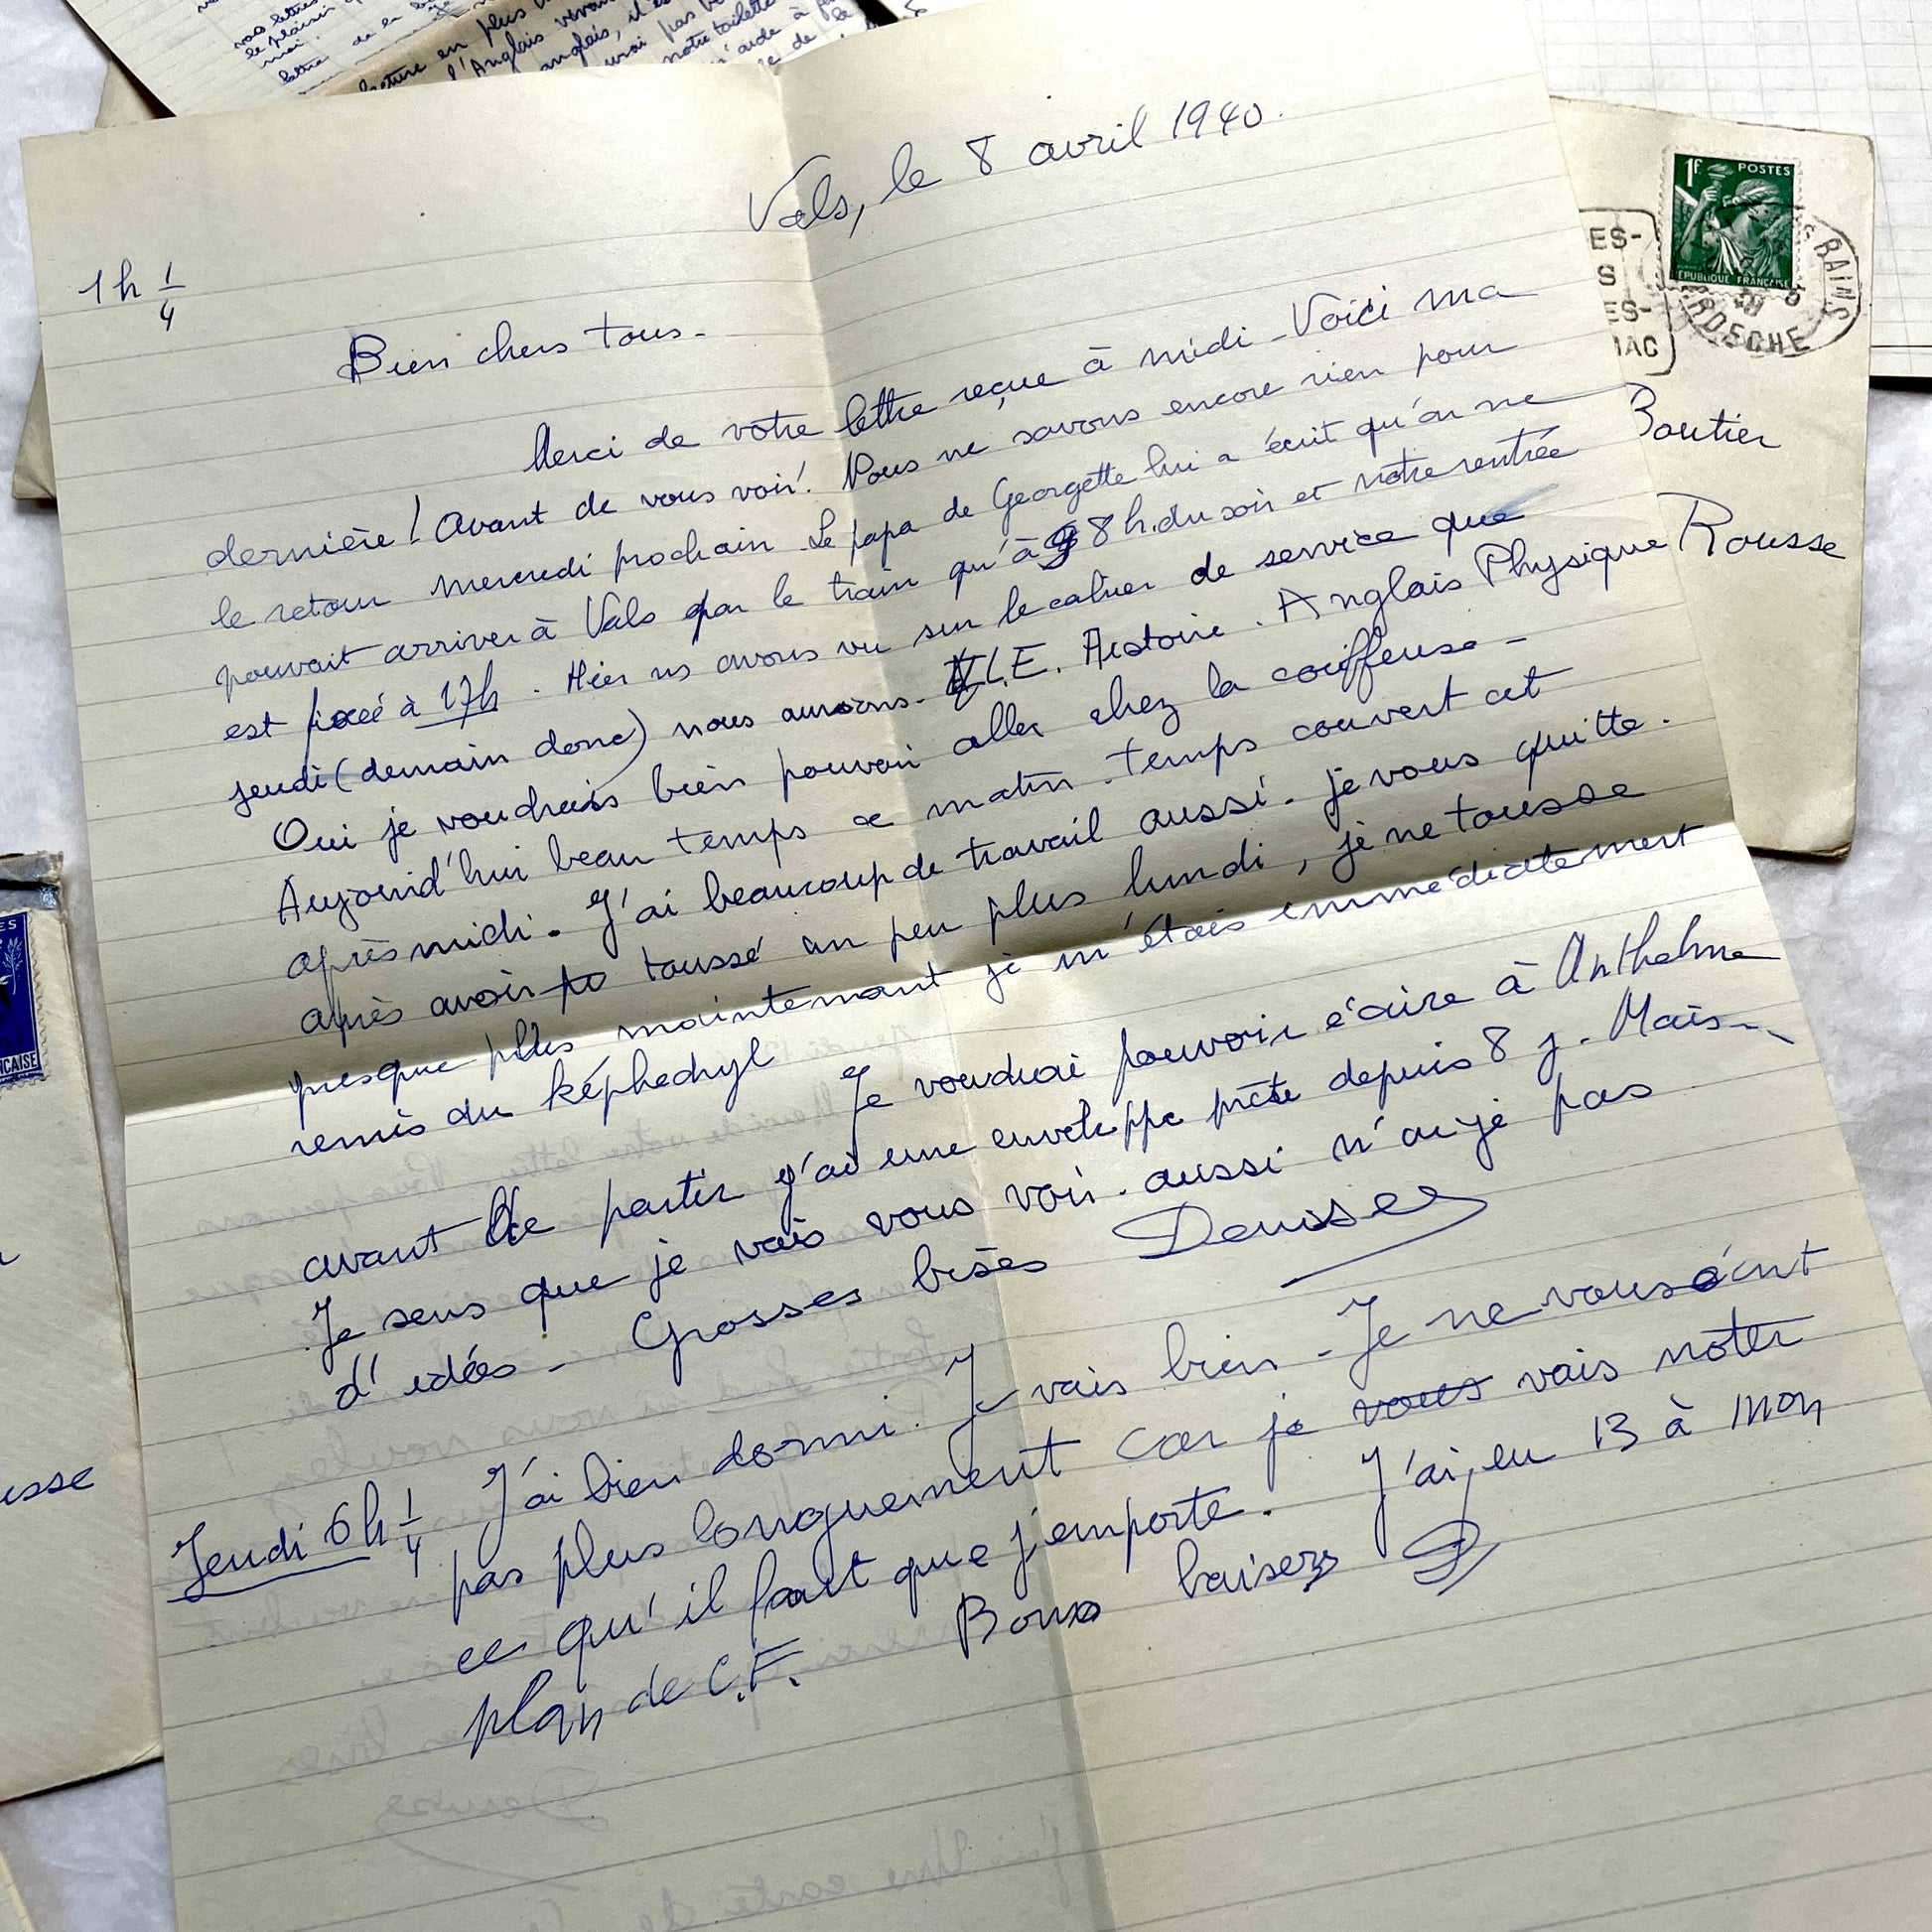 vos lettres
le plaisir
moi.
lettre de la
lecture en plus
l'Anglais
anglais, il
vrai pas
notre toilette
Vals, le 8 avril 1940.
1h 1/4
Bien chers tous -
Merci de votre lettre reçue à midi - Voici ma
dernière ! Avant de vous voir ! Nous ne savons encore rien pour
le retour mercredi prochain. Le papa de Georgette lui a écrit qu'on ne
pouvait arriver à Vals par le train qu'à 8 h. du soir et notre rentrée
est fixée à 17h. Hier ns avons vu sur le cahier de service que
jeudi (demain donc) nous aurions - L.E. Histoire. Anglais Physique
Oui je voudrais bien pouvoir aller chez la coiffeuse -
Aujourd'hui beau temps ce matin. temps couvert cet
après midi. J'ai beaucoup de travail aussi. je vous quitte.
après avoir to toussé un peu plus lundi, je ne tousse
presque plus maintenant je m'étais immédiatement
remis du képhedryl Je voudrai pouvoir écrire à Anthelme
avant de partir j'ai une enveloppe prête depuis 8 j. Mais --
Je sens que je vais vous voir. aussi n'ai je pas
d'idées - Grosses bises Denise
Jeudi 6h 1/4 J'ai bien dormi. Je vais bien - Je ne vous écrit
pas plus longuement car je vous vais noter
ce qu'il faut que j'emporte. J'ai eu 13 à mon
plan de C.F. Bons baisers D
1f POSTES
REPUBLIQUE FRANÇAISE
BAINS
ARDECHE
ES-
S
ES-
IAC
Boutier
Rousse
ES
NCAISE
usse
Denise